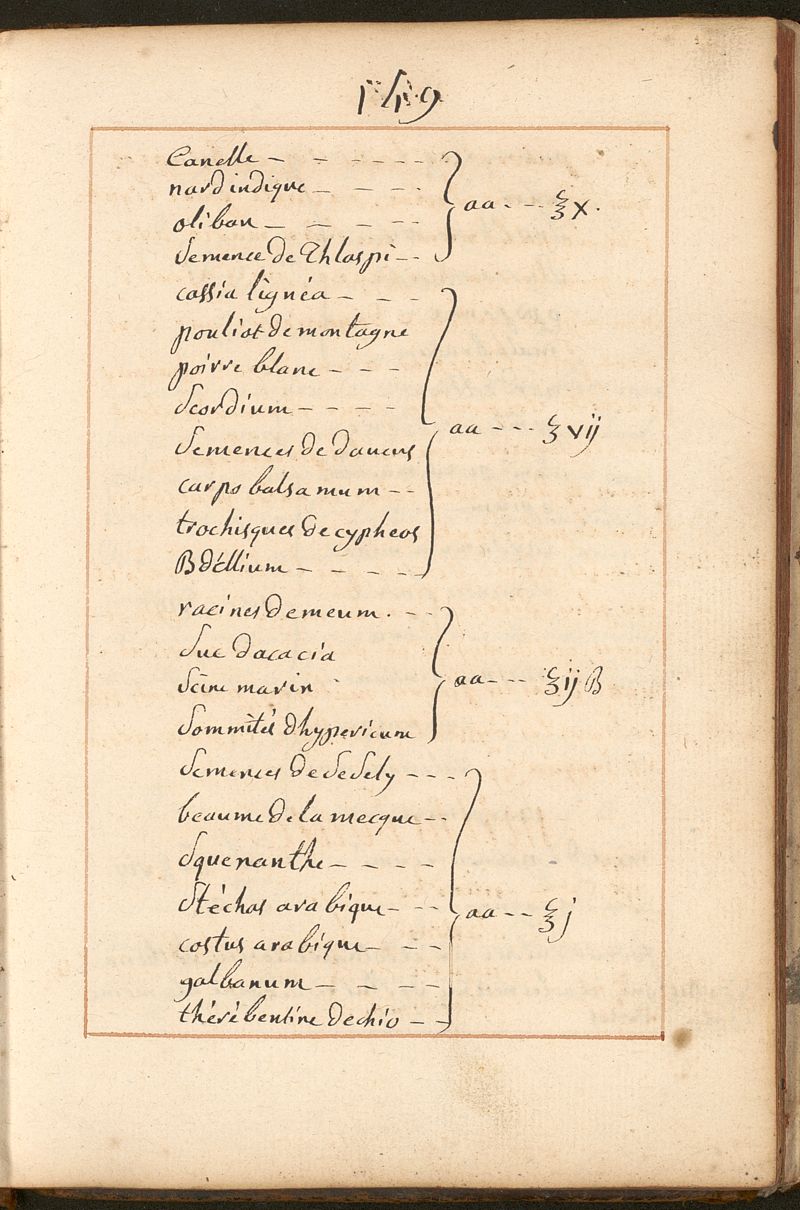 149
Canelle - - - - - -
nard indique - - - -
oliban - - - - -
Semence de Thlaspi - -
aa - - - ℥ x.
cassia lignéa - - -
pouliot de montagne
poivre blanc - - -
Scordium - - - -
Semences de daucus
carpo balsamum - -
trochisques de cypheos
Bdéllium - - - - -
aa - - - ℥ vij
racines de meum. - -
Suc dacacia
Séné marin
Sommités dhypericum
aa - - - ℥ ij ß
Semences de Sesely - - -
beaume de la mecque - -
Squenanthe - - - -
Stéchas arabique - - -
costus arabique - - -
galbanum - - - -
thérébentine de chio - -
aa - - ℥ j